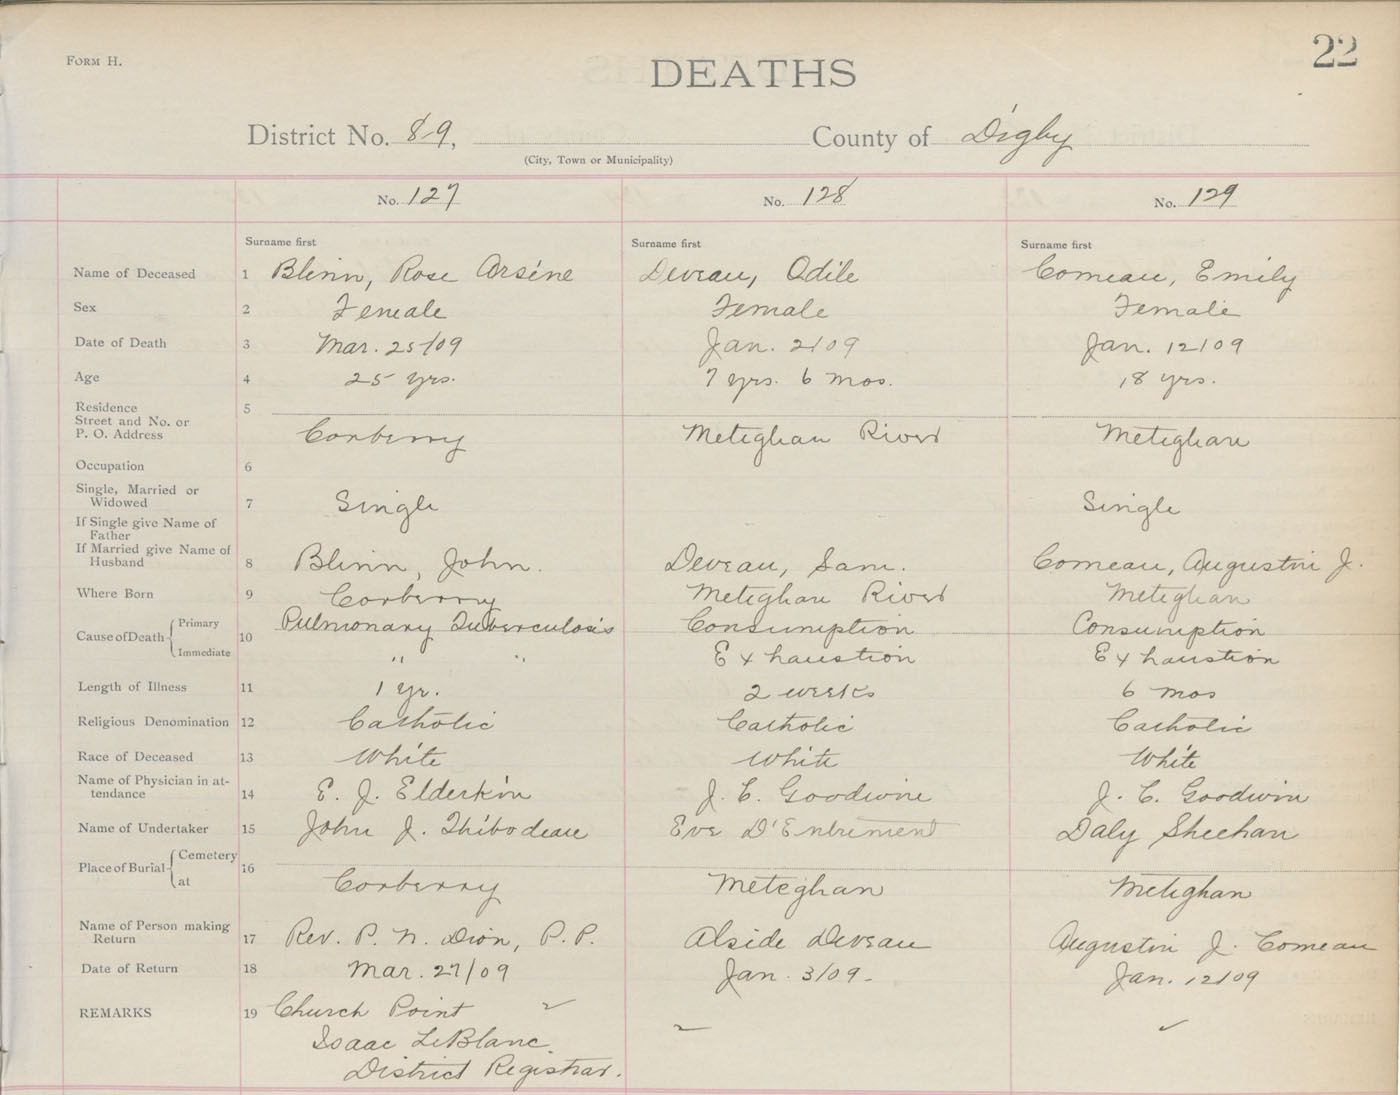 FORM H.
22
DEATHS
District No. 8-9, County of Digby
(City, Town or Municipality)
No. 127 No. 128 No. 129
Surname first Surname first Surname first
Name of Deceased 1 Blinn, Rose Arséne Deveau, Odile Comeau, Emily
Sex 2 Female Female Female
Date of Death 3 Mar. 25/09 Jan. 2/09 Jan. 12/09
Age 4 25 yrs. 7 yrs. 6 mos. 18 yrs.
Residence 5
Street and No. or
P. O. Address Corberry Meteghan River Meteghan
Occupation 6
Single, Married or
Widowed 7 Single Single
If Single give Name of
Father
If Married give Name of
Husband 8 Blinn, John. Deveau, Sam. Comeau, Augustin J.
Where Born 9 Corberry Meteghan River Meteghan
Cause of Death Primary 10 Pulmonary Tuberculosis Consumption Consumption
Immediate " " Exhaustion Exhaustion
Length of Illness 11 1 yr. 2 weeks 6 mos
Religious Denomination 12 Catholic Catholic Catholic
Race of Deceased 13 White White White
Name of Physician in at-
tendance 14 E. J. Elderkin J. E. Goodwine J. C. Goodwin
Name of Undertaker 15 John J. Thibodeau Eve D'Entrement Daly Sheehan
Place of Burial Cemetery 16
at Corberry Meteghan Meteghan
Name of Person making
Return 17 Rev. P. N. Dion, P.P. Alside Deveau Augustin J. Comeau
Date of Return 18 Mar. 27/09 Jan. 3/09- Jan. 12/09
REMARKS 19 Church Point
Isaac LeBlanc
District Registrar.